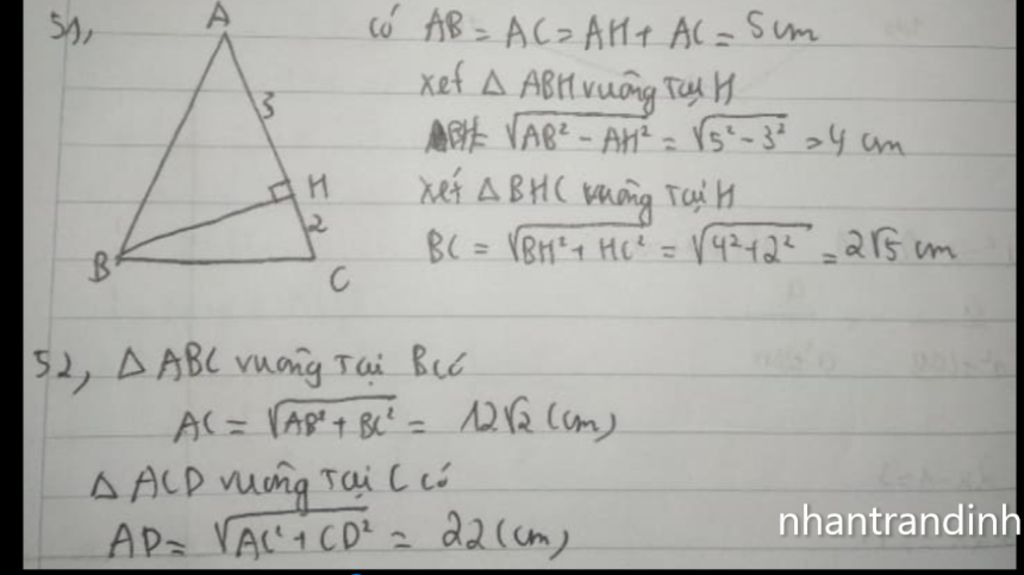 51,
A
3
H
2
B
C
có AB = AC = AH + AC = 5cm
xét Δ ABH vuông tại H
BH = √AB² - AH² = √5² - 3² = 4 cm
xét Δ BHC vuông tại H
BC = √BH² + HC² = √4² + 2² = 2√5 cm
52, Δ ABC vuông tại B có
AC = √AB² + BC² = 12√2 (cm)
Δ ACD vuông tại C có
AD = √AC² + CD² = 22 (cm)
nhantrandinh